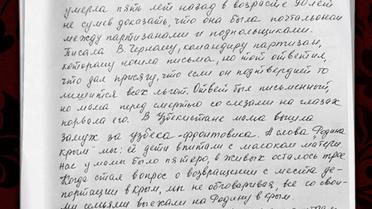 умерла пять лет назад в возрасте 90 лет
не сумев доказать, что она была почтальоном
между партизанами и подпольщиками.
Писала В. Герману, командиру партизан,
которому носила письма, но тот ответил,
что дал присягу, что если он подтвердит то
лишится всех льгот. Ответ был письменной,
но мама перед смертью со слезами на глазах
порвала его. В Узбекистане мама вышла
замуж за узбека-фронтовика. А слова "Родина
Крым" мы: её дети впитали с молоком матери
Нас у мамы было пятеро, в живых осталось трое
Когда стал вопрос о возвращении с места де-
портации в Крым, мы не обговаривая, все со свои-
ми семьями выехали на Родину в Крым.